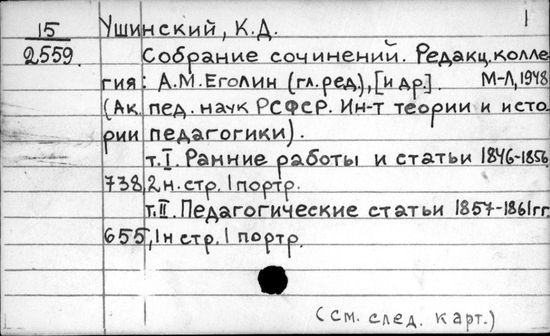 15 Ушинский, К.Д. 1
2559 Собрание сочинений. Редакц. колле
гия: А.М. Еголин (гл. ред.), [и др.]. М-Л, 1948
(Ак. пед. наук РСФСР. Ин-т теории и исто
рии педагогики).
т. I. Ранние работы и статьи 1846-1856
738, 2 н. стр. 1 портр.
т. II. Педагогические статьи 1857-1861 гг
655, 1 н стр. 1 портр.
(см. след. карт.)